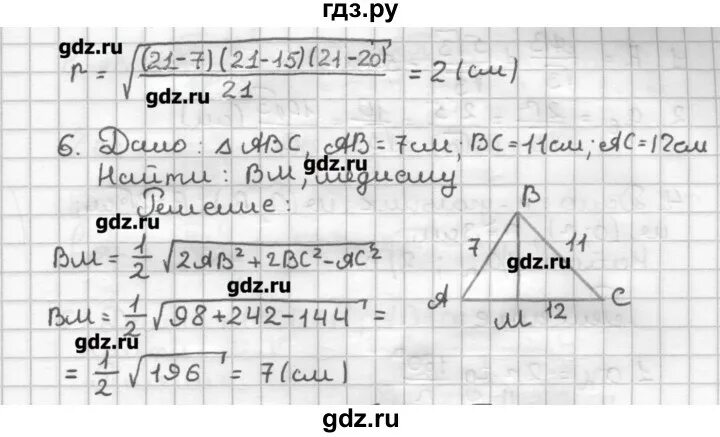 гдз.ру
gdz.ru
r = √((21-7)(21-15)(21-20)/21) = 2 (см)
gdz.ru
6. Дано: Δ ABC, AB = 7см; BC = 11см; AC = 12см
gdz.ru
Найти: BM, медиану
gdz.ru
Решение:
BM = 1/2 √(2AB² + 2BC² - AC²)
gdz.ru
BM = 1/2 √(98 + 242 - 144) =
gdz.ru
= 1/2 √196 = 7 (см)
B
7
11
gdz.ru
A
C
M
12
gdz.ru